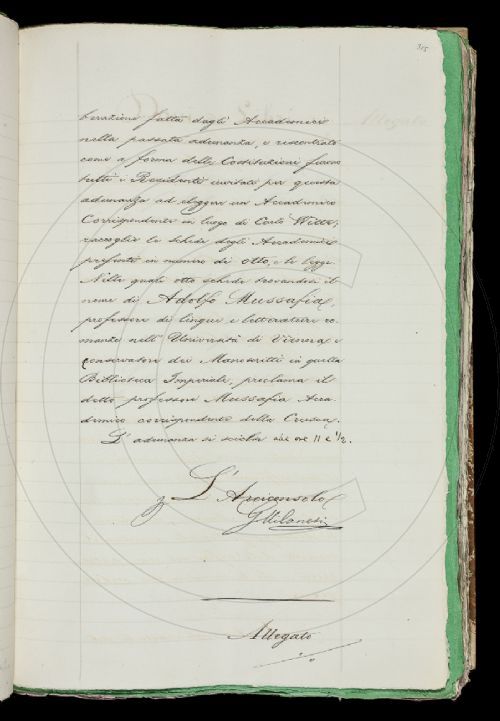 315
berazione fatta dagli Accademici
nella passata adunanza, e riscontrato
come a forma delle Costituzioni furon
tutti i Residenti invitati per questa
adunanza ad eleggere un Accademico
Corrispondente in luogo di Carlo Witte,
raccoglie le schede degli Accademici
presenti in numero di otto, e le legge.
Nelle quali otto schede trovandosi il
nome di Adolfo Mussafia,
professore di lingue e letterature ro-
manze nell' Università di Vienna e
conservatore dei Manoscritti in quella
Biblioteca Imperiale, proclama il
detto professore Mussafia Acca-
demico corrispondente della Crusca.
L' adunanza si scioglie alle ore 11 e 1/2.
L' Arciconsolo
G Milanesi
Allegato